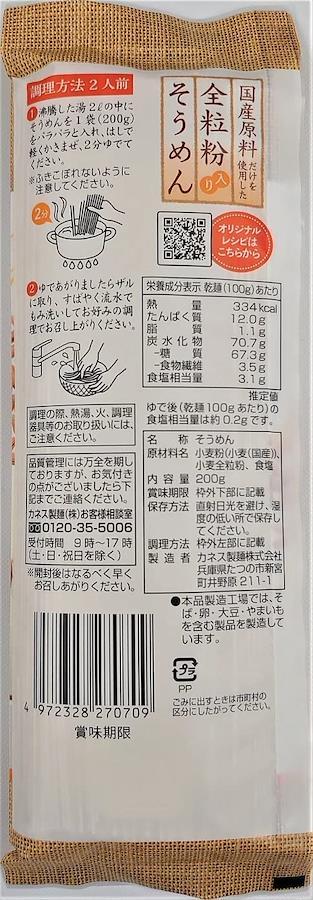 国産原料だけを使用した
全粒粉入り
そうめん
調理方法2人前
1 沸騰した湯2ℓの中に
そうめんを1袋(200g)
をバラバラと入れ、はしで
軽くかきまぜ、2分ゆでて
ください。
※ふきこぼれないように
注意してください。
2分
オリジナル
レシピは
こちらから
2 ゆであがりましたらザル
に取り、すばやく流水で
もみ洗いしてお好みの調
理でお召し上がりください。
調理の際、熱湯、火、調理
器具等のお取り扱いには、
ご注意ください。
品質管理には万全を期し
ておりますが、お気付き
の点がございましたら下
記までご連絡ください。
カネス製麺(株)お客様相談室
0120-35-5006
受付時間 9時~17時
(土・日・祝日を除く)
※開封後はなるべく早く
お召しあがりください。
栄養成分表示 乾麺(100g)あたり
熱量 334kcal
たんぱく質 12.0g
脂質 1.1g
炭水化物 70.7g
-糖質 67.3g
-食物繊維 3.5g
食塩相当量 3.1g
推定値
ゆで後(乾麺100gあたり)の
食塩相当量は約0.2gです。
名称 そうめん
原材料名 小麦粉(小麦(国産))、
小麦全粒粉、食塩
内容量 200g
賞味期限 枠外下部に記載
保存方法 直射日光を避け、湿
度の低い所で保存し
てください。
調理方法 枠外左部に記載
製造者 カネス製麺株式会社
兵庫県たつの市新宮
町井野原211-1
●本品製造工場では、そ
ば・卵・大豆・やまいも
を含む製品を製造して
います。
プラ
PP
ごみに出すときは市町村の
区分にしたがってください。
4 972328 270709
賞味期限